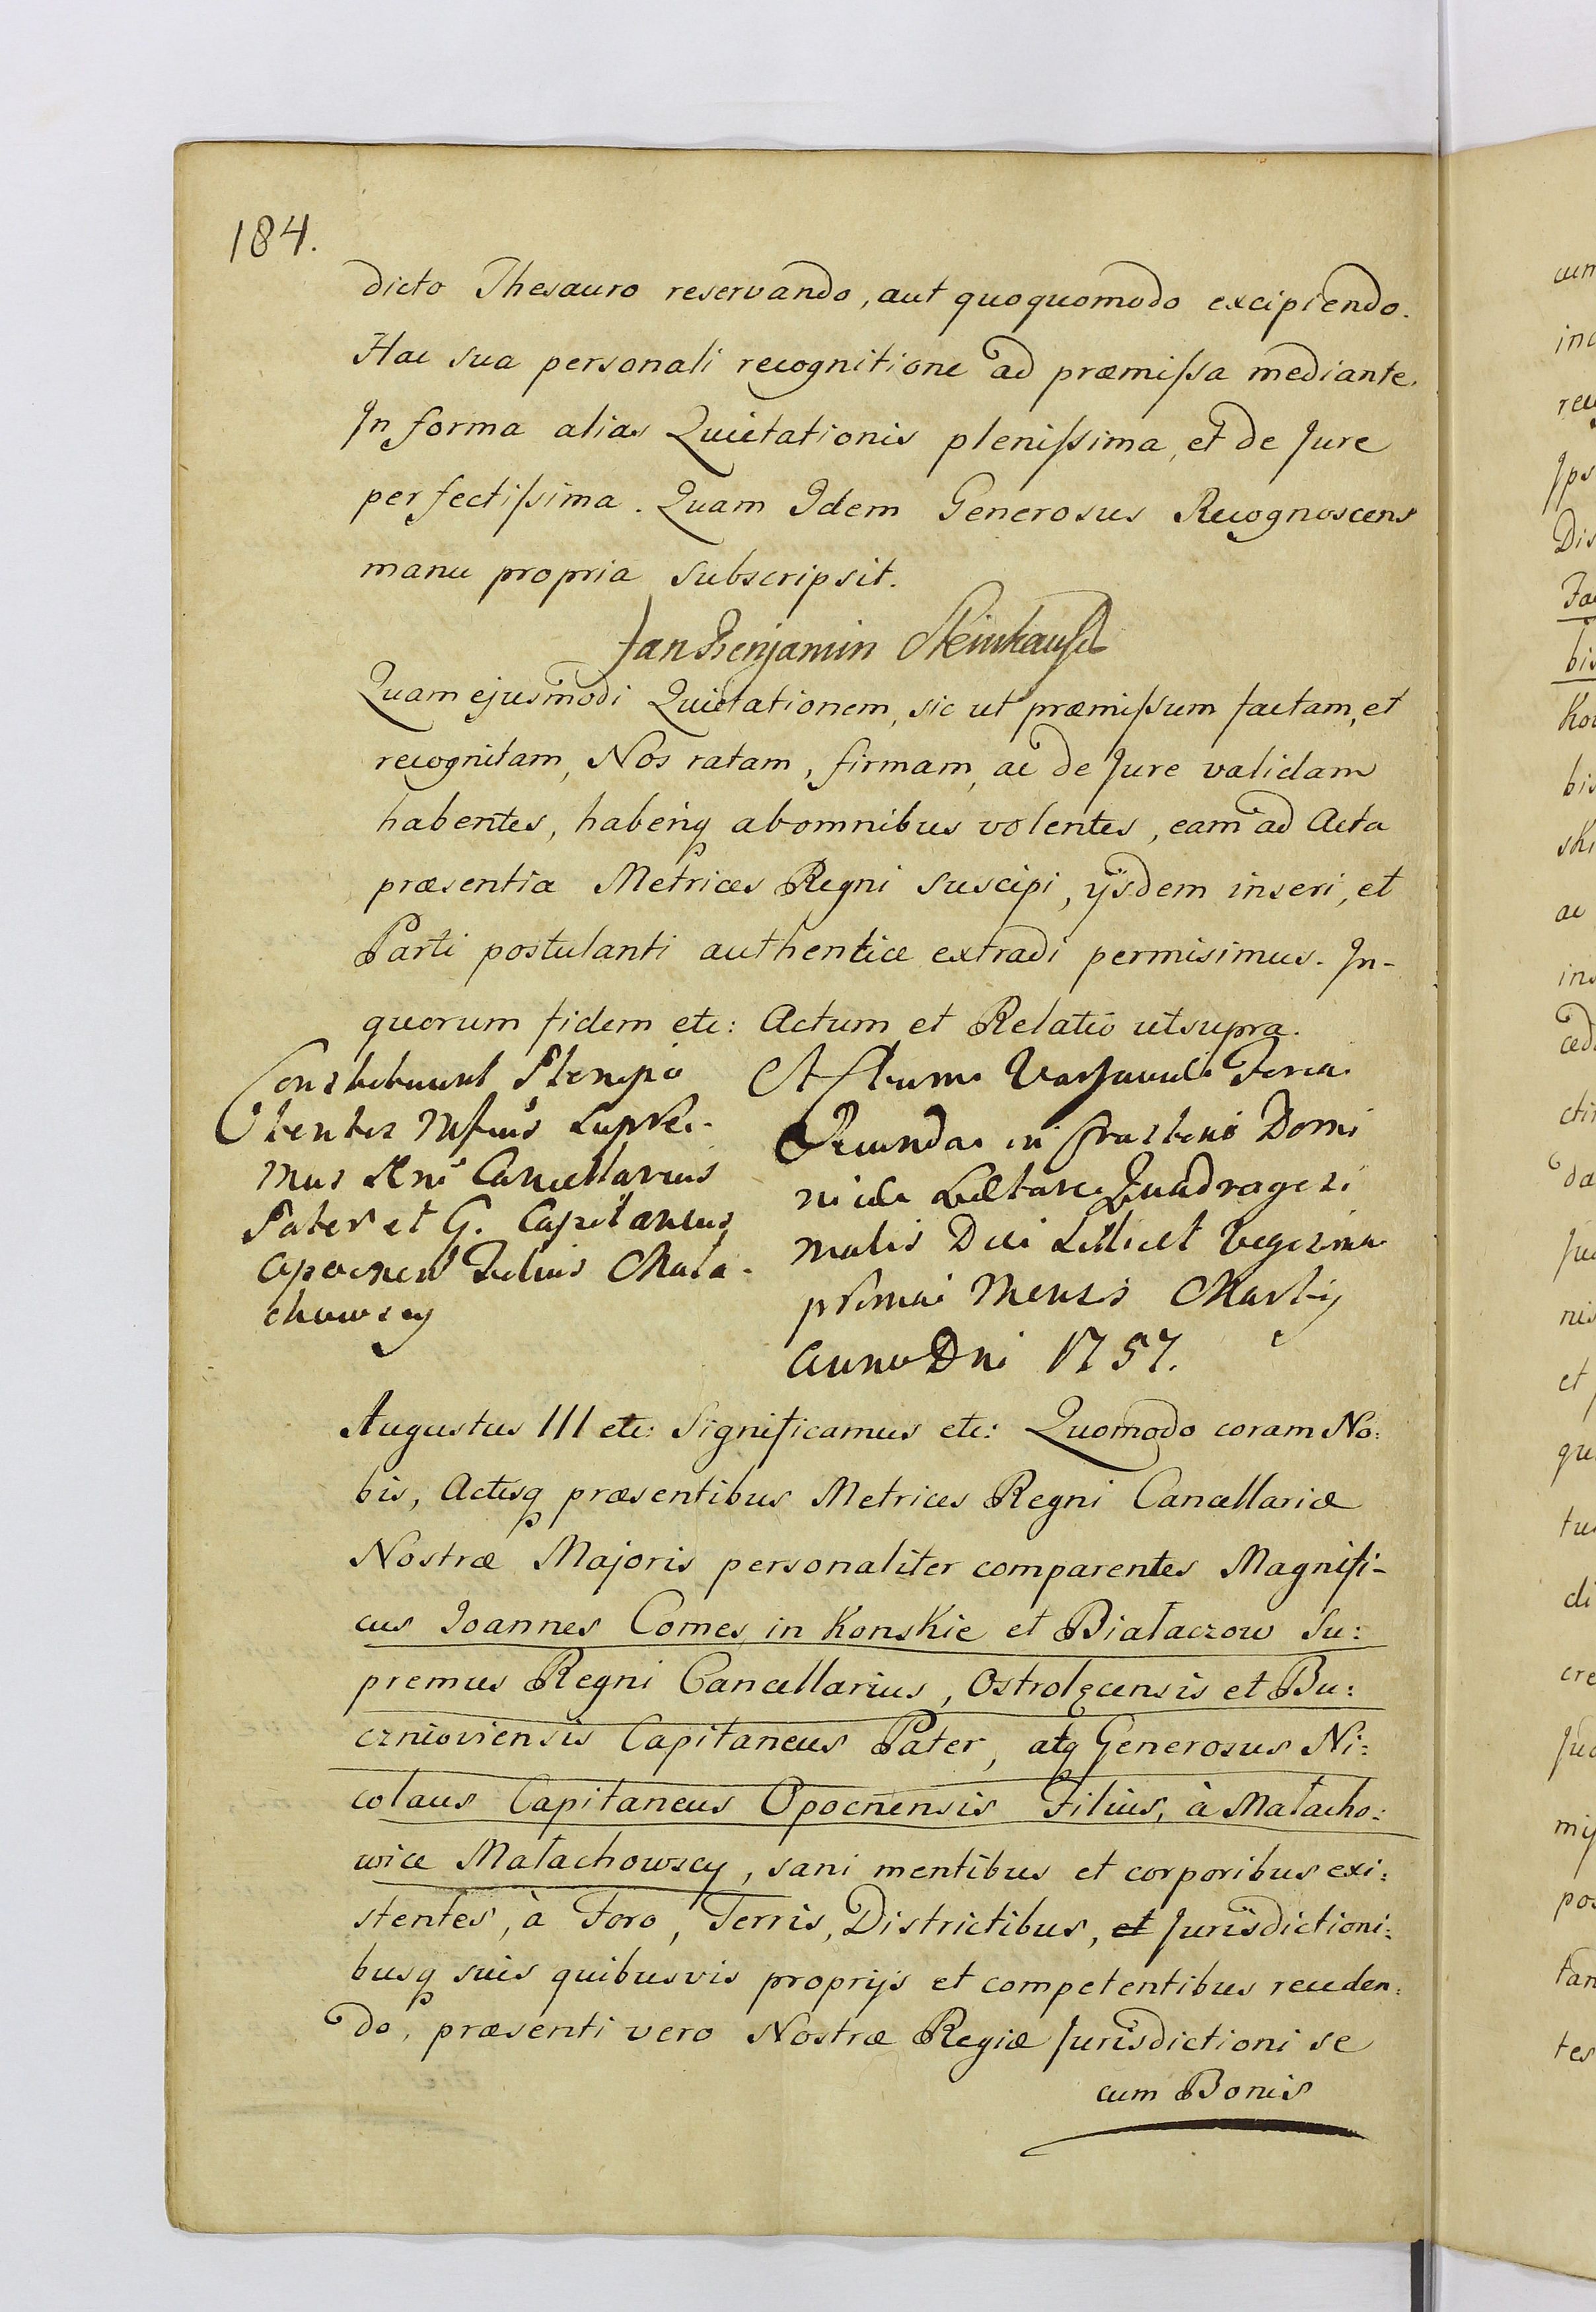 184.
dicto Thesauro reservando, aut quoquomodo excipiendo.
Hac sua personali recognitione ad præmissa mediante.
In forma alias Quietationis plenissima, et de Jure
perfectissima. Quam Idem Generosus Recognoscens
manu propria subscripsit.
Jan Benjamin Steinhauser
Quam ejusmodi Quietationem, sic ut præmissum factam, et
recognitam, Nos ratam, firmam, ac de Jure validam
habentes, haberiq ab omnibus volentes, eam ad Acta
præsentia Metrices Regni suscipi, ijsdem inseri, et
Parti postulanti authentice extradi permisimus. In-
quorum fidem etc: Actum et Relatio ut supra.
Constituunt Plenipo
tentes Mfcus Supre-
mus Rni Cancellarius
Pater et G. Capitaneus
Opocnen Filius Mała-
chowscy
Actum Varsaviæ Feria
Secunda in Crastino Domi
nicæ Lætare Quadragesi
malis Die scilicet vegesima
prima Mensis Martij
Anno Dni 1757.
Augustus III etc: Significamus etc: Quomodo coram No:
bis, Actisq præsentibus Metrices Regni Cancellariæ
Nostræ Majoris personaliter comparentes Magnifi-
cus Ioannes Comes in Konskie et Białaczow Su:
premus Regni Cancellarius, Ostrolęcensis et Bu:
cznioviensis Capitaneus Pater, atq Generosus Ni:
colaus Capitaneus Opocnensis Filius, à Małacho:
wice Małachowscy, sani mentibus et corporibus exi:
stentes, à Foro, Terris, Districtibus, et Jurisdictioni:
busq suis quibusvis proprijs et competentibus receden:
do, præsenti vero Nostræ Regiæ Jurisdictioni se
cum Bonis